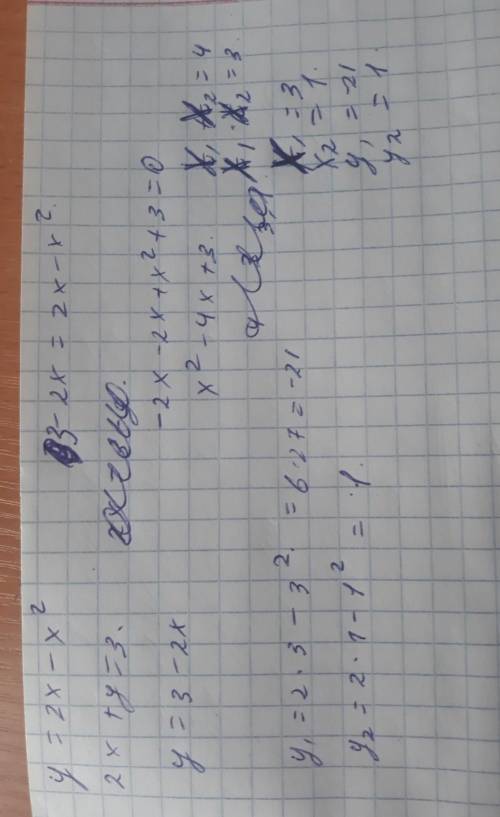 y = 2x - x²
2x + y = 3.
y = 3 - 2x
3 - 2x = 2x - x².
-2x - 2x + x² + 3 = 0
x² - 4x + 3.
x₁ · x₂ = 4
x₁ · x₂ = 3.
x₁ = 3
x₂ = 1.
y₁ = -21
y₂ = 1.
y₁ = 2 · 3 - 3². = 6 · 27 = -21
y₂ = 2 · 1 - 1² = 1.